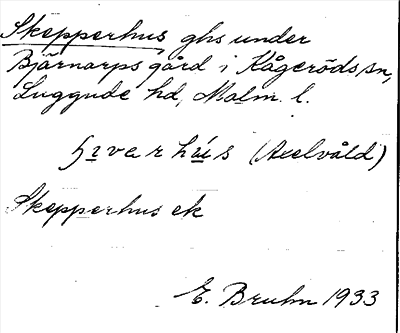 Skepperhus ghs under
Bjärnarps gård i Kågeröds sn,
Luggude hd, Malm. l.
(Axelvåld)
Skepperhus ek
E. Bruhn 1933